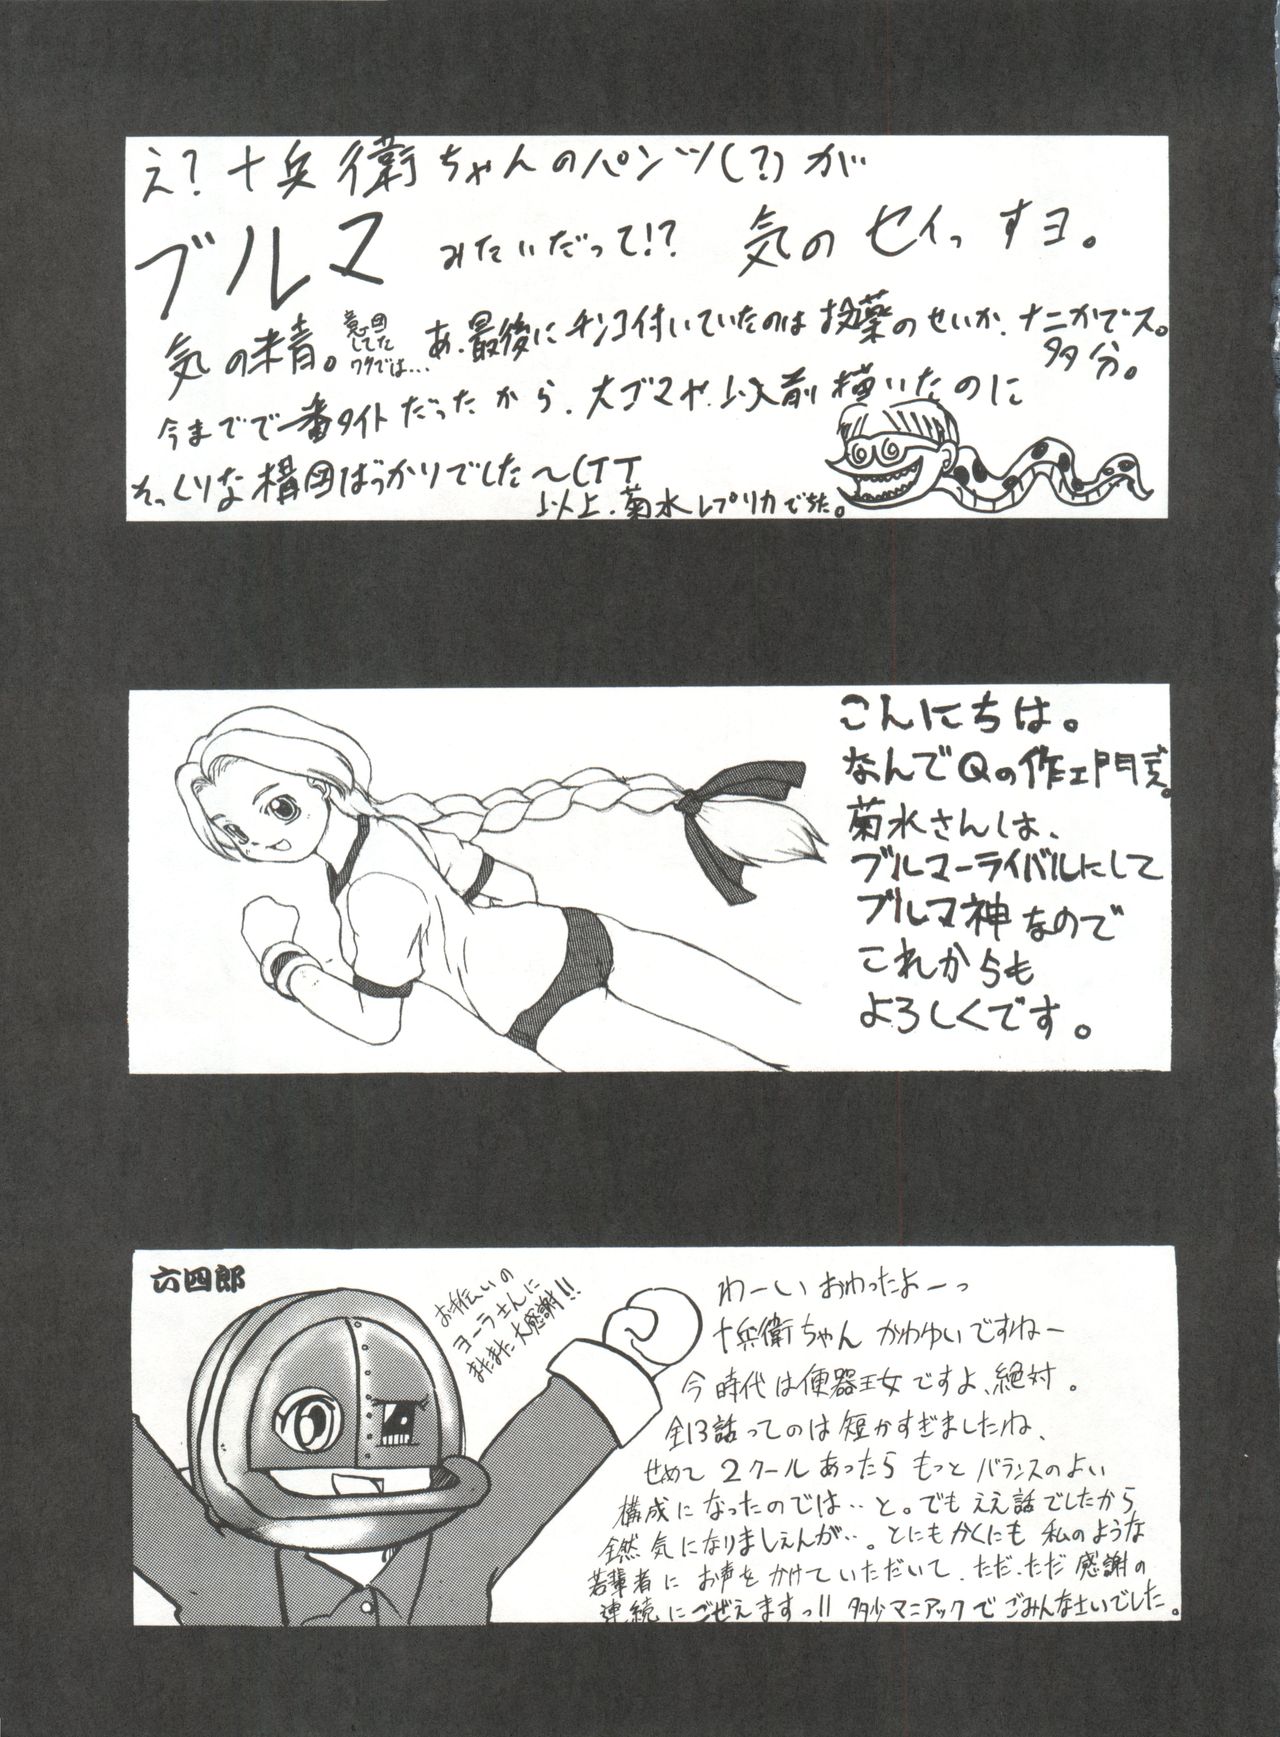 え?十兵衛ちゃんのパンツ(?)が
ブルマみたいだって!?気のセイっすヨ。
気の精。
意図
してた
ワケでは…
あ、最後にチンコ付いていたのは投薬のせいか、ナニかでス。
多分。
今までで一番タイトだったから、大ゴマや、以前描いたのに
そっくりな構図ばっかりでした〜(TT
以上、菊水レプリカでちた。
こんにちは。
なんでQの作エ門式。
菊水さんは、
ブルマーライバルにして
ブルマ神なので
これからも
よろしくです。
六四郎
お手伝いの
ヨーラさんに
まだまだ大感謝!!
わーいおわったよーっ
十兵衛ちゃんかわゆいですねー
今時代は便器王女ですよ、絶対。
全13話ってのは短かすぎましたね、
せめて2クールあったらもっとバランスのよい
構成になったのでは…と。でもええ話でしたから
全然気になりましぇんが…。とにもかくにも私のような
若輩者にお声をかけていただいて、ただ、ただ感謝の
連続にごぜえますっ!!多少マニアックでごみんなさいでした。